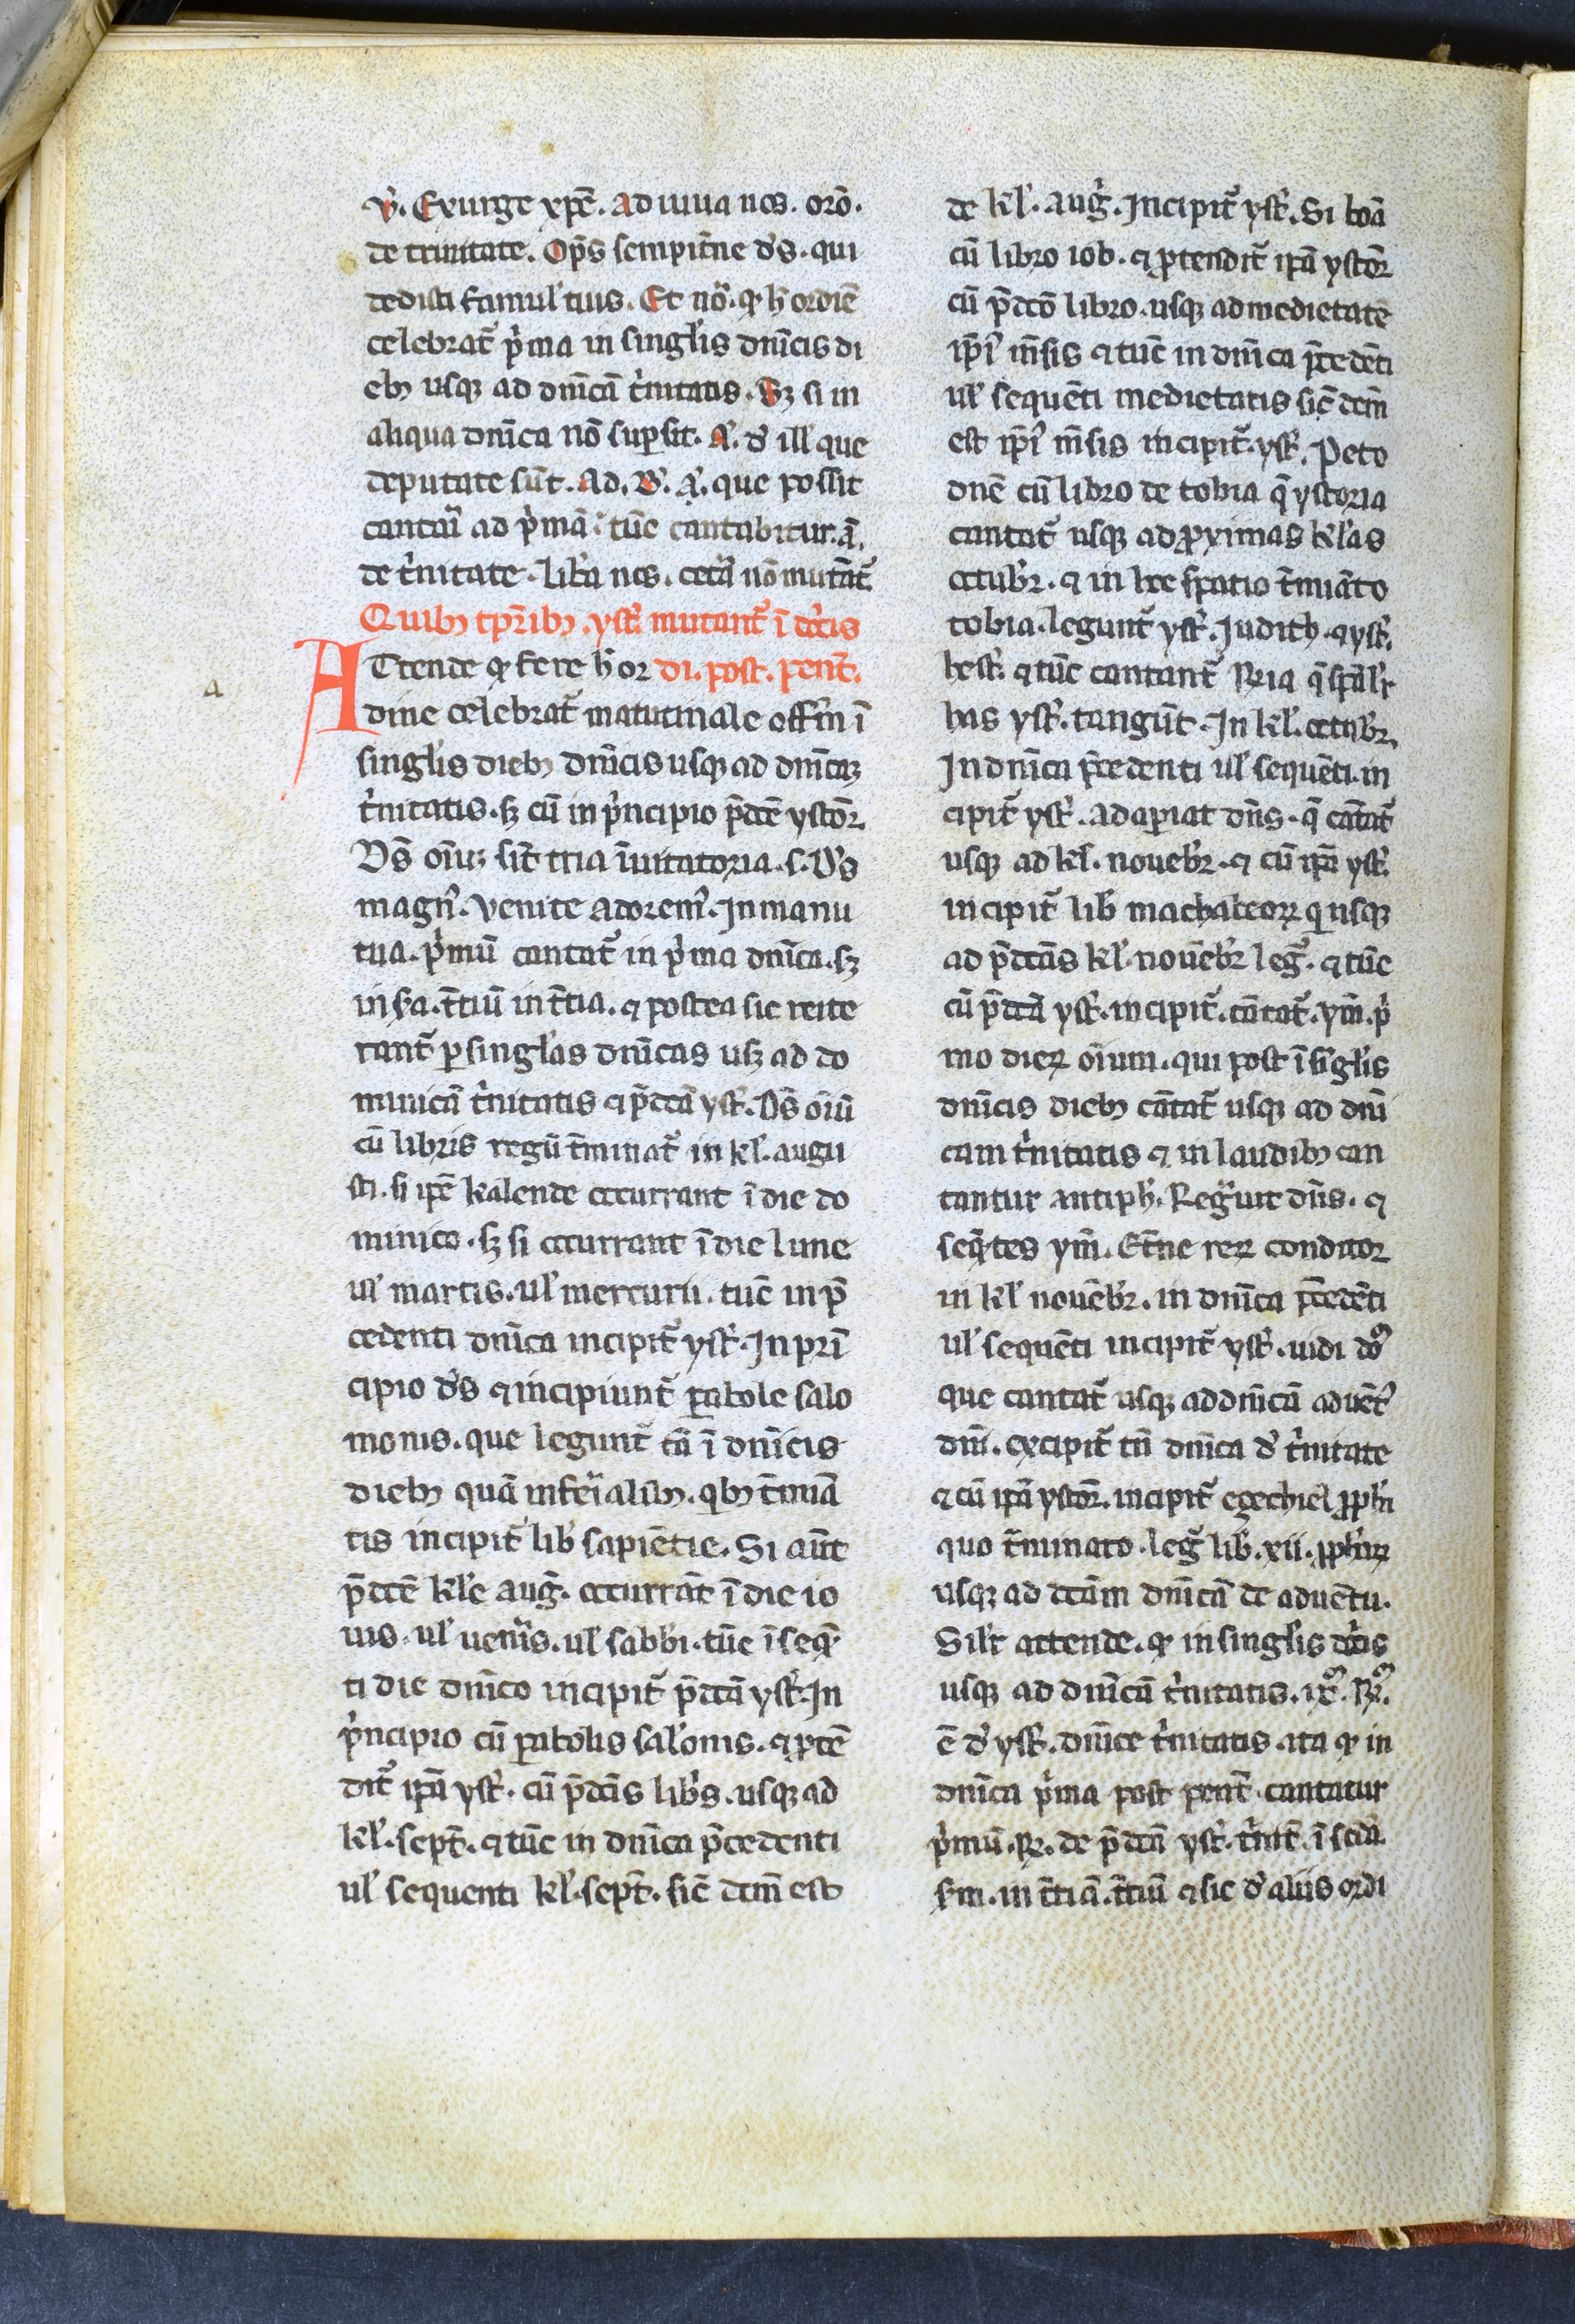 v̉. Exurge xp̄e. Adiuua nos. orō.
de trinitate. Op̄s sempit̄ne d̓s. qui
dedisti famul̓ tuis. Et no᷑. ꝙ h̄ ordiē
celebrat᷑ p̓ma in singl̓is dn̄icis di
eb⁊ usqꝫ ad dn̄icā t̓nitatis. Sꝫ si in
aliqua dn̄ica nō suꝑsit. A᷑. d̓ ill̓ que
deputate sūt. Ad. B᷑. A᷑. que possit
cantari ad p̓mā. tūc cantabitur. ā.
de t̓nitate. lib̓a nos. cet̓a nō mutāt᷑
Quib⁊ tp̄rib⁊ yst̓. mutant᷑ ī dc̓is
ATtende ꝙ fere h̄ or di. post. pent̄.
dine celebrat᷑ matutinale offm̄ ī
singl̓is dieb⁊ dn̄icis usqꝫ ad dn̄icaꝫ
t̓nitatis. sꝫ cū in p̓ncipio p̄dc̄e ystōꝝ
Ds̄ oīuꝫ sūt tria īuitatoria. s. D̓s
magn᷒. Venite adorem᷒. In manu
tua. p̓mū cantat᷑ in p̓ma dn̄ica. sꝫ
in s̓a. t̄tiū in t̄tia. ⁊ postea sic reite
rant᷑ ꝑ singl̓as dn̄icas usqꝫ ad do
minicā t̓nitatis ⁊ p̄dc̄ā yst̓. Ds̄ oīū
cū libris regū t̄minat᷑ in kl̓. augu
sti. si ip̄e kalende occurrant ī die do
minico. sꝫ si occurrant ī die lune
ul̓ martis. ul̓ mercurii. tūc in p̄
cedenti dn̄ica incipit᷑ yst̓. In pri̅
cipio d̓s ⁊ incipiunt᷑ ꝑabole salo
monis. que legunt᷑ tā ī dn̄icis
dieb⁊ quā in fer̓ialib⁊. qb⁊ t̄minā
tis incipit᷑ lib̓ sapiēcie. Si aūt
p̄dc̄e kl̓e aug̓. occurrāt ī die io
uis. ul̓ uen̓is. ul̓ sabb̓i. tūc ī seq̄
ti die dn̄ico incipit᷑ p̄dc̄ā yst̓. In
p̓ncipio cū ꝑabolis sal̓onis. ⁊ ꝓtē
dit᷑ ip̄ā yst̓. cū p̄dc̄is lib̓s. usqꝫ ad
kl̓. sept̄. ⁊ tūc in dn̄ica p̄cedenti
ul̓ sequenti kl̓. sept̄. sic̄ dcm̄ est
de kl̓. aug̓. Incipit᷑ yst̓. Si bōa
cū libro iob. ⁊ ꝓtendit᷑ ip̄ā ystōꝝ
cū p̄dc̄o libro. usqꝫ ad medietatē
ip̄i᷒ m̄sis ⁊ tūc in dn̄ica p̄cedēti
ul̓ sequēti medietatis sic̄ dcm̄
est ip̄i᷒ m̄sis incipit᷑. yst̓. Peto
dnē cū libro de tobia q̄ ystoria
cantat᷑ usqꝫ ad ꝓximas kl̓as
octub̓ꝝ. ⁊ in hoc spatio t̄minato
tobia. legunt᷑ yst̓. Judith. ⁊ yst̓.
hest̓. ⁊ tūc cantant᷑ ꝶria q̄ spālr̓
has yst̓. tangūt. In kl̓. octub̓ꝝ.
In dn̄ica p̄cedenti ul̓ sequēti. in
cipit᷑ yst̓. Adaꝑiat dn̄s. q̄ cātat᷑
usqꝫ ad kl̓. noueb̓ꝝ. ⁊ cū ip̄ā yst̓.
incipit᷑ lib̓ machabeoꝝ q̓ usqꝫ
ad p̄dc̄as kl̓. nouēb̓ꝝ leg᷑. ⁊ tūc
cū p̄dc̄ā yst̓. incipit᷑. cātat᷑. ym̄. p̓
mo dieꝝ oīum. qui post ī sīgl̓is
dn̄icis dieb⁊ cātat᷑ usqꝫ ad dn̄i
cam t̓nitatis ⁊ in laudib⁊ can
tantur antiph̓. Regnauit dn̄s. ⁊
seq̄tes ym̄. Et̄ne reꝝ conditor
in kl̓ nouēb̓ꝝ. in dn̄ica p̄cedēti
ul̓ sequēti incipit᷑ yst̓. uidi do᷒
que cantat᷑ usqꝫ ad dn̄icā aduēt᷒
dn̄i. excipit᷑ tn̄ dn̄ica d̓ t̓nitate
⁊ cū ip̄ā ystōꝝ. incipit᷑ eçechiel ꝓph̓a
quo t̄minato. leg᷑ lib̓. xii. ꝓph̓aꝝ
usqꝫ ad dc̄am dn̄icā de aduētu.
Silr̓ attende. ꝙ in singl̓is dc̓is
usqꝫ ad dn̄icā t̓nitatis. ix᷒. ꝶ᷒.
ē d̓ yst̓. dn̄ice t̓nitatis. ita ꝙ in
dn̄ica p̓ma post pent̄. cantatur
p̓mū. ꝶ. de p̄dc̄ā yst̓. t̓nit̄. ī scd̓a.
s̓m. in t̄tiā. t̄tiū ⁊ sic d̓ aliis ordi
a